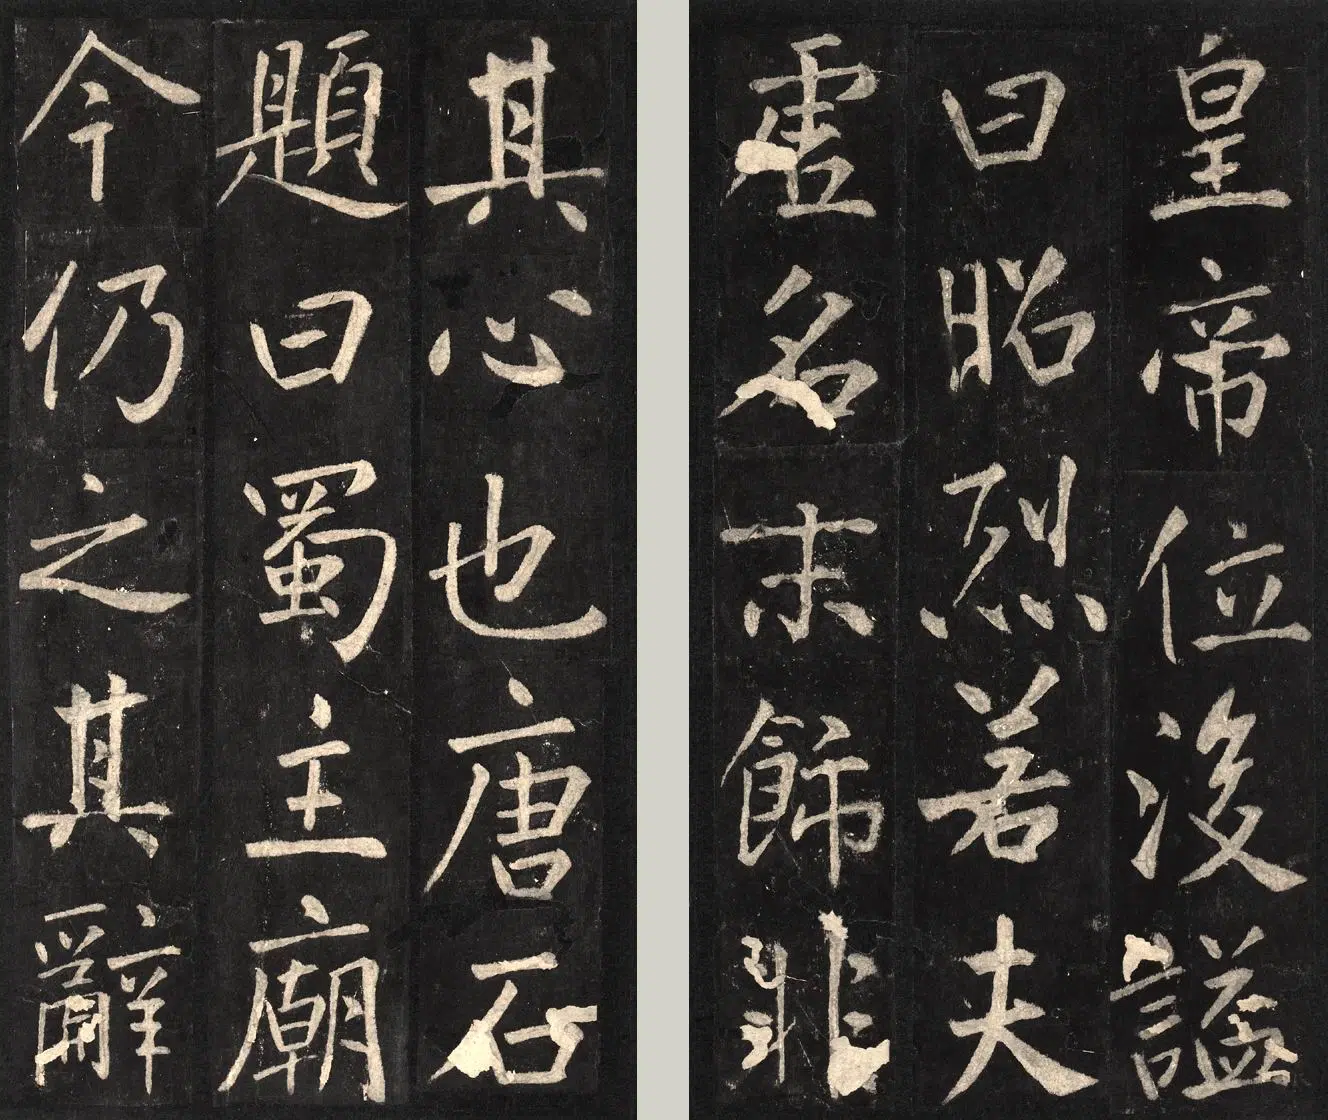 皇帝位没謚
曰昭烈若夫
虛名末飾非
其心也唐石
題曰蜀主廟
今仍之其辭